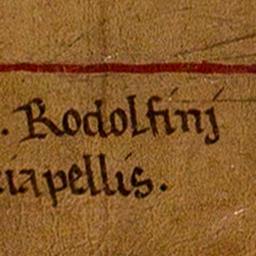 . Rodolfinj
iapellis.